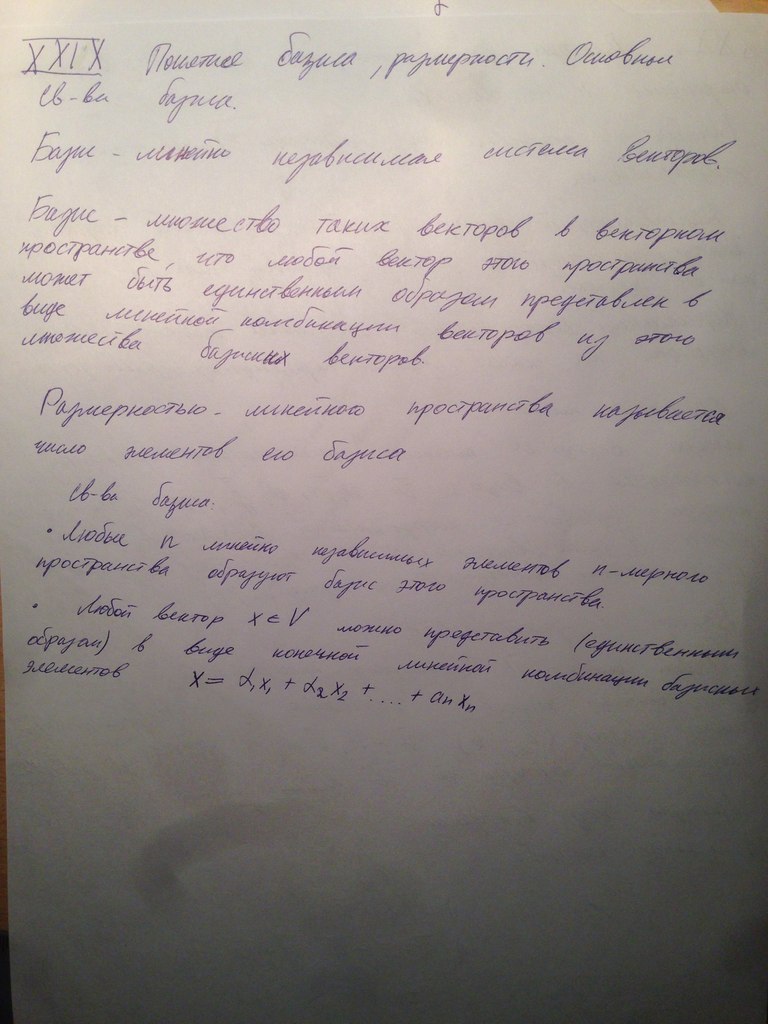 XXIX Понятие базиса, размерности. Основные
св-ва базиса.
Базис - линейно независимая система векторов.
Базис - множество таких векторов в векторном
пространстве, что любой вектор этого пространства
может быть единственным образом представлен в
виде линейной комбинации векторов из этого
множества базисных векторов.
Размерностью - линейного пространства называется
число элементов его базиса
Св-ва базиса:
• Любые n линейно независимых элементов n-мерного
пространства образуют базис этого пространства.
• Любой вектор x ∈ V можно представить (единственным
образом) в виде конечной линейной комбинации базисных
элементов
x = α₁x₁ + α₂x₂ + .... + aₙxₙ